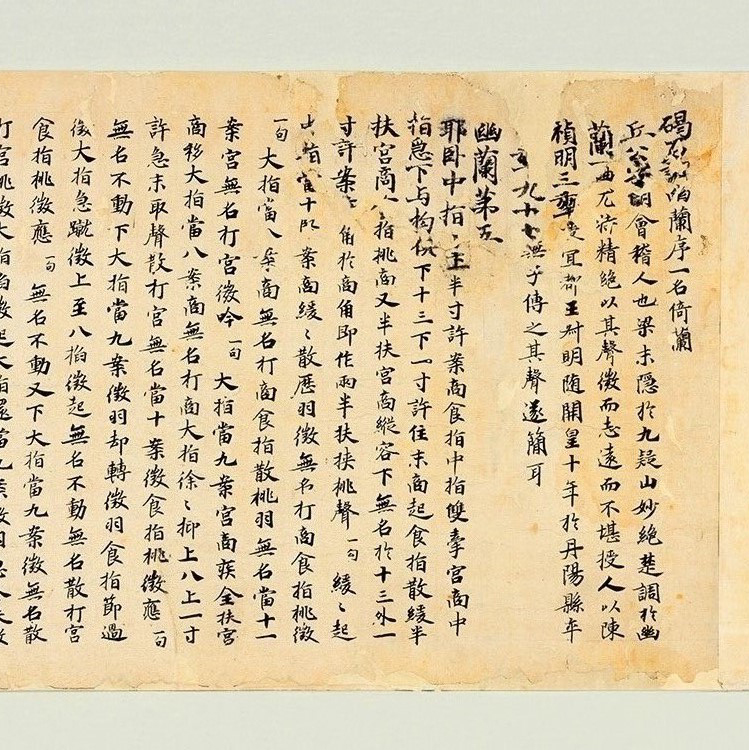 碣石調幽蘭序一名倚蘭
丘公字明會稽人也梁末隱於九疑山妙絕楚調於幽
蘭一曲尤特精絕以其聲微而志遠而不堪授人以陳
禎明三年授宜都王叔明隨開皇十年於丹陽縣卒
年九十七無子傳之其聲遂簡耳
幽蘭第五
耶卧中指 半寸許案商食指中指雙牽宮商中
指急下与拘俱下十三下一寸許住末商起食指散緩半
扶宮商八指挑商又半扶宮商縱容下無名於十三外一
寸許案商角於商角即作兩半扶挾挑聲一句 緩〻起
大指當十 案商緩〻散歷羽徵無名打商食指挑徵
一句 大指當八案商無名打商食指散挑羽無名當十一
案宮無名打宮徵吟一句 大指當九案宮商疾全扶宮
商移大指當八案商無名打商大指徐〻抑上八上一寸
許急末取聲散打宮無名當十案徵食指挑徵應一句
無名不動下大指當九案徵羽却轉徵羽食指節過
徵大指急蹴徵上至八指徵起無名不動無名散打宮
食指挑徵應一句 無名不動又下大指當九案徵無名散
打宮挑徵大指